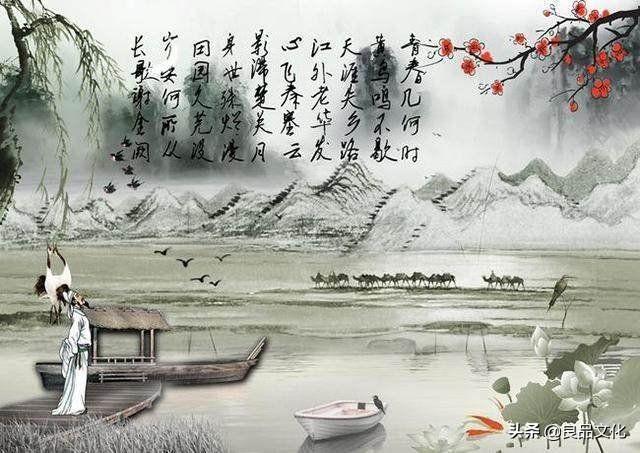 青春几何时
黄鸟鸣不歇
天涯失乡路
江外老华发
心飞秦塞云
影滞楚关月
身世殊烂漫
田园久芜没
岁晏何所从
长歌谢金阙
头条 @良品文化